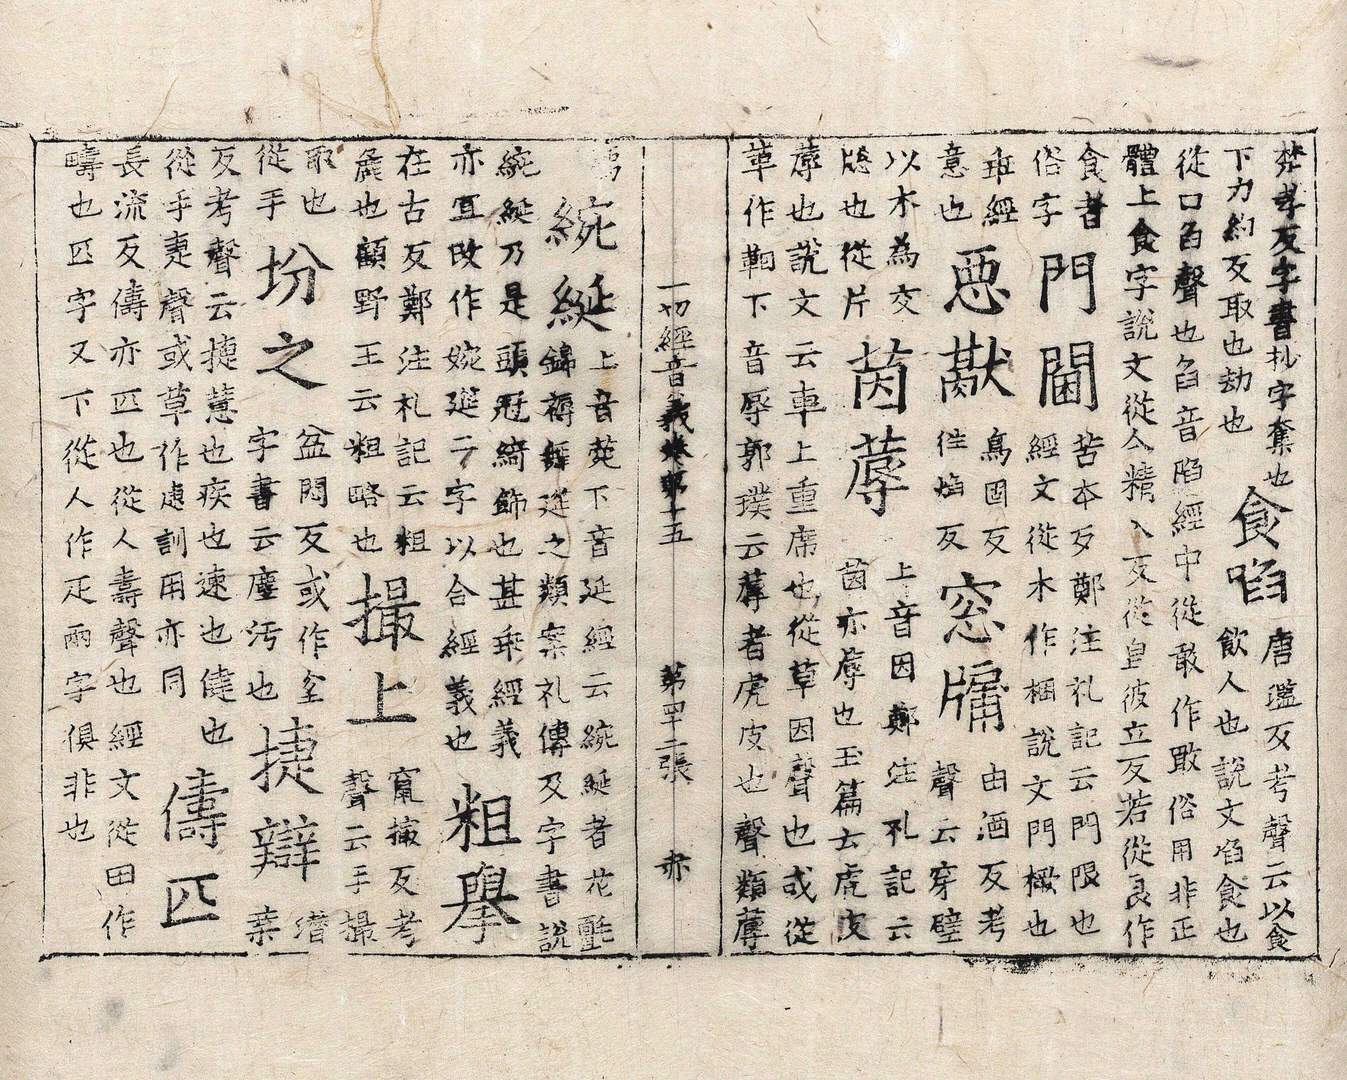 楚孝反字書抄字奪也
下力約反取也劫也
食啗
唐濫反考聲云以食
飲人也說文啗食也
從口臽聲也臽音陷經中從敢作噉俗用非正
體上食字說文從亼精入反從皀彼立反若從良作
食者
俗字
門閫
苦本反鄭注礼記云門限也
經文從木作梱說文門橛也
乖經
意也
惡猒
烏固反
伀焰反
窓牖
由酒反考
聲云穿壁
以木為交
牕也從片
茵蓐
上音因鄭注礼記云
茵亦蓐也玉篇云虎皮
蓐也說文云車上重席也從草因聲也或從
革作鞇下音辱郭璞云蓐者虎皮也聲類蓐
一切經音義卷第十五 第四十二張 亦
薦
綩綖
上音苑下音延經云綩綖者花氈
錦褥舞筵之類案礼傳及字書說
綩綖乃是頭冠綺飾也甚乖經義
亦宜改作婉筵二字以合經義也
粗舉
在古反鄭注札記云粗
麁也顧野王云粗略也
撮上
竄撮反考
聲云手撮
取也
從手
坋之
盆悶反或作坌
字書云塵污也
捷辯
潛
葉
反考聲云捷慧也疾也速也健也
從手疌聲或草作疌訓用亦同
儔匹
長流反儔亦匹也從人壽聲也經文從田作
疇也匹字又下從人作疋兩字俱非也